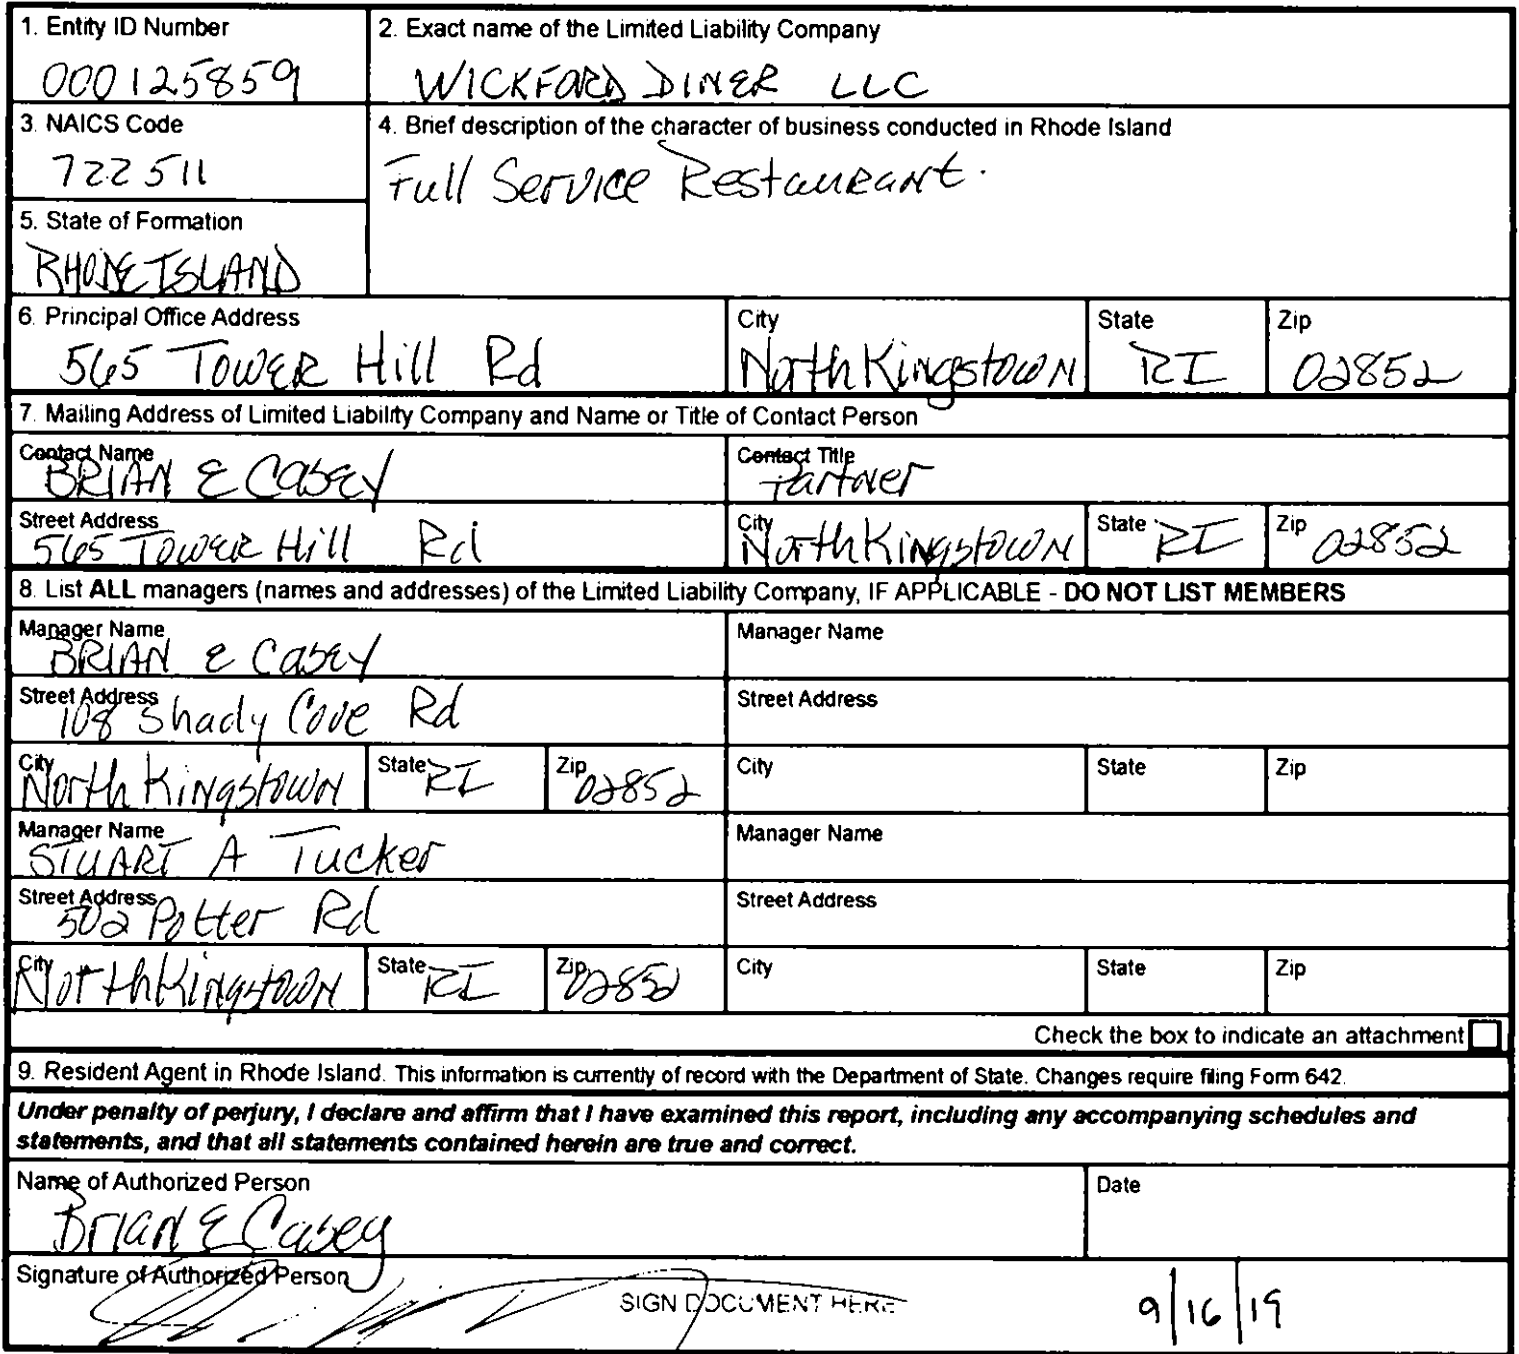 1. Entity ID Number
000125859
2. Exact name of the Limited Liability Company
WICKFORD DINER LLC
3. NAICS Code
722511
4. Brief description of the character of business conducted in Rhode Island
Full Service Restaurant.
5. State of Formation
RHODE ISLAND
6. Principal Office Address
565 Tower Hill Rd
City
North Kingstown
State
RI
Zip
02852
7. Mailing Address of Limited Liability Company and Name or Title of Contact Person
Contact Name
BRIAN E Casey
Contact Title
Partner
Street Address
565 Tower Hill Rd
City
North Kingstown
State
RI
Zip
02852
8. List ALL managers (names and addresses) of the Limited Liability Company, IF APPLICABLE - DO NOT LIST MEMBERS
Manager Name
BRIAN E Casey
Manager Name
Street Address
108 Shady Cove Rd
Street Address
City
North Kingstown
State
RI
Zip
02852
City
State
Zip
Manager Name
STUART A Tucker
Manager Name
Street Address
502 Potter Rd
Street Address
City
North Kingstown
State
RI
Zip
02852
City
State
Zip
Check the box to indicate an attachment
9. Resident Agent in Rhode Island. This information is currently of record with the Department of State. Changes require filing Form 642.
Under penalty of perjury, I declare and affirm that I have examined this report, including any accompanying schedules and
statements, and that all statements contained herein are true and correct.
Name of Authorized Person
Brian E Casey
Date
Signature of Authorized Person
SIGN DOCUMENT HERE
9/16/19